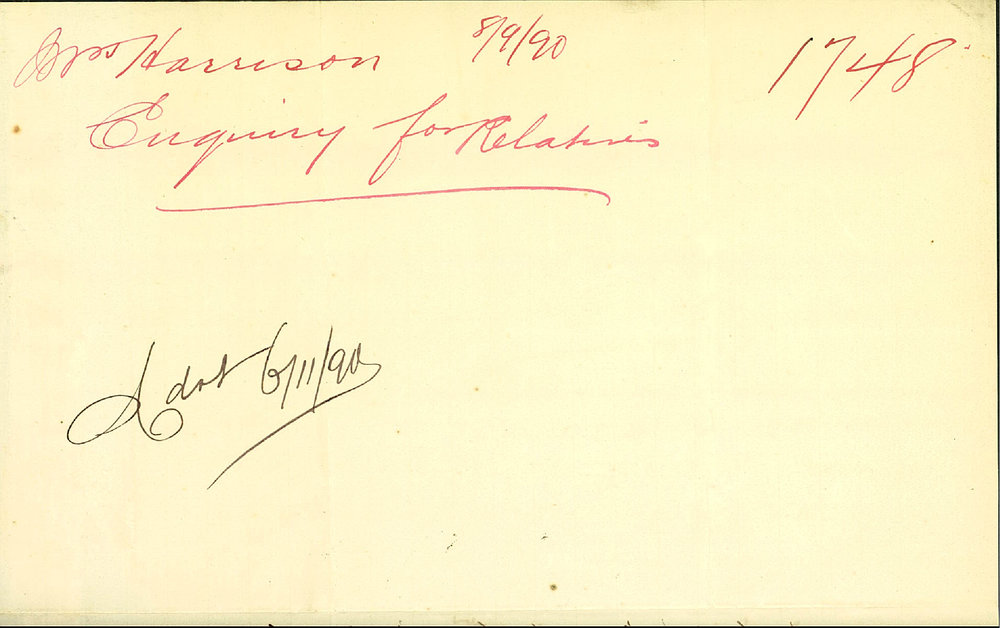 Mrs Harrison 8/9/90 1748
Enquiry for Relatives
6/11/90